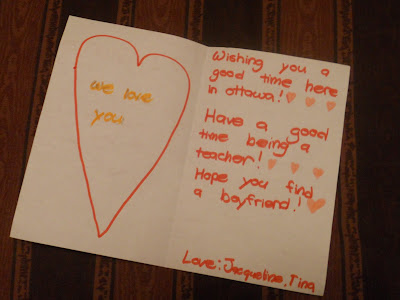 we love
you!
Wishing you a
good time here
in ottawa!
Have a good
time being a
teacher!
Hope you find
a boyfriend!
Love: Jacqueline, Tina